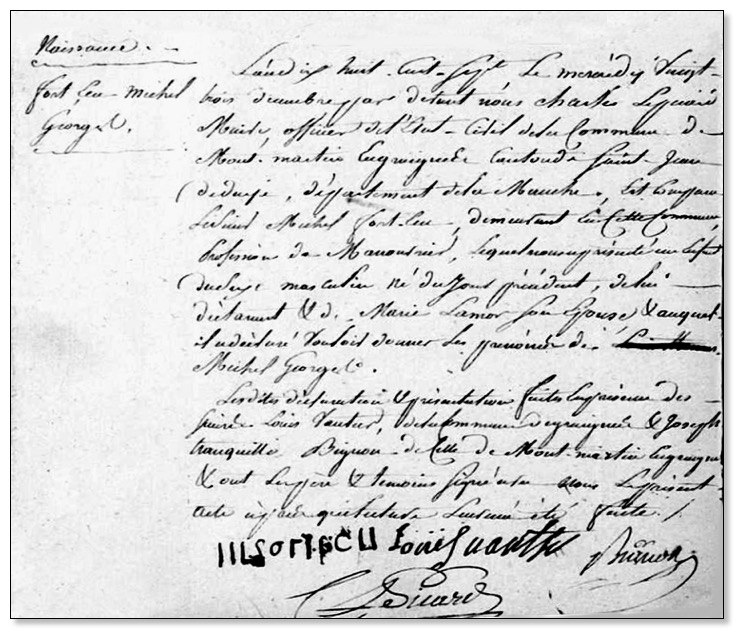 Naissance.
fort Leu Michel
George.
L'an dix huit-cent-sept Le mercredy Vingt-
trois decembre par devant nous charles Lepuard
Maire, officier de l'Etat-Civil de la Commune de
Mont-martin En graignes Canton de Saint-Jean
de daye, département de la Manche, Est Comparu
Michel fort-Leu, demeurant En Cette Commune,
Profession de Manouvrier, Lequel nous a présenté un Enfant
du Sexe masculin né du Jour précédent, de lui
déclarant & de Marie Lamor Son Epouse & auquel
il a déclaré Vouloir donner Les prénoms de
Michel George.
Lesdites déclaration & présentation faites En présence des
Louis Vautier, de la Commune de graignes & Joseph
tranquille Bignon de Celle de Mont-martin En graignes
& ont Les père & temoins Signé avec nous Le présent
acte après que lecture Leur en a été faite. /.
Louis Vautier
Bignon